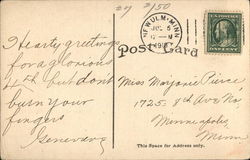 27 2/50
NEW ULM, MINN.
Post Card
Hearty greetings
for a glorious
4th but dont
burn your
fingers
Genevieve
Miss Marjorie Pierce
1725. 8th Ave No
Minneapolis
Minn
This Space for Address only.